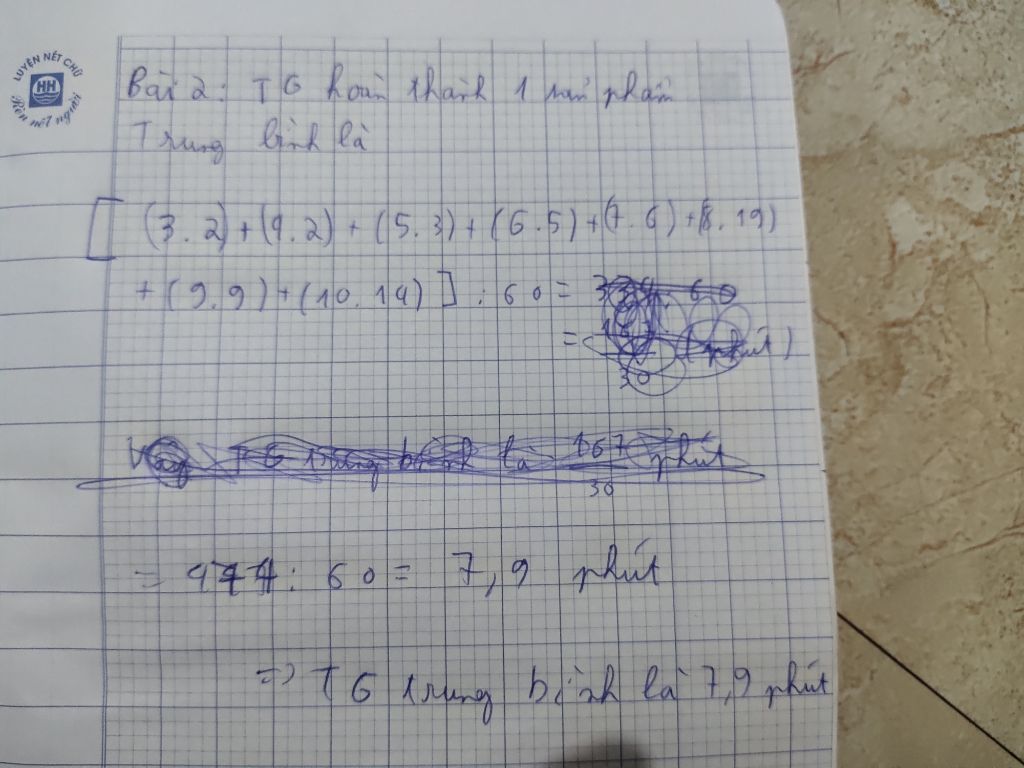 LUYỆN NẾT CHỮ
HH
Rèn nết người
Bài 2: TG hoàn thành 1 sản phẩm
Trung bình là
[ (3.2)+(4.2)+(5.3)+(6.5)+(7.6)+(8.19)
+(9.9)+(10.14) ] : 60 =
= phút)
30
TG trung bình là 167 phút
30
= 474 : 60 = 7,9 phút
=> TG trung bình là 7,9 phút